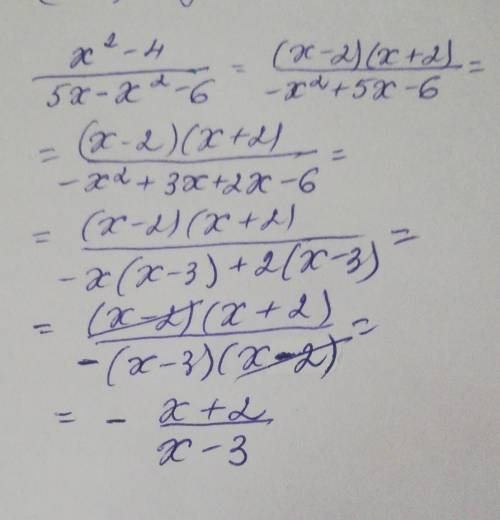 x² - 4 / 5x - x² - 6 = (x-2)(x+2) / -x² + 5x - 6 =
= (x-2)(x+2) / -x² + 3x + 2x - 6 =
= (x-2)(x+2) / -x(x-3) + 2(x-3) =
= (x-2)(x+2) / -(x-3)(x-2) =
= - x+2 / x-3